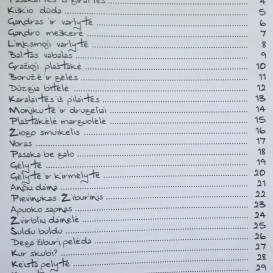 4
Kiškio dūda 5
Gandras ir varlytė 6
Gandro meškerė 7
Linksmoji varlytė 8
Baltas vabalas 9
Gražioji plaštakė 10
Boružė ir gėlės 11
Dūzgia bitelė 12
Karalaitės iš pilaitės 13
Monikutė ir drugeliai 14
Plaštakėlė margaspalvėlė 15
Žiogo smuikelis 16
Voras 17
Pasaka be galo 18
Gėlytė 19
Gėlytė ir kirmėlytė 20
Ančių dama 21
Pievinukas Žiburinis 22
Apuoko sapnas 23
Žvirblių damelė 24
Suldu buldu 25
Dega žiburį pelėda 26
Kur skubi? 27
Keista pelytė 28
29